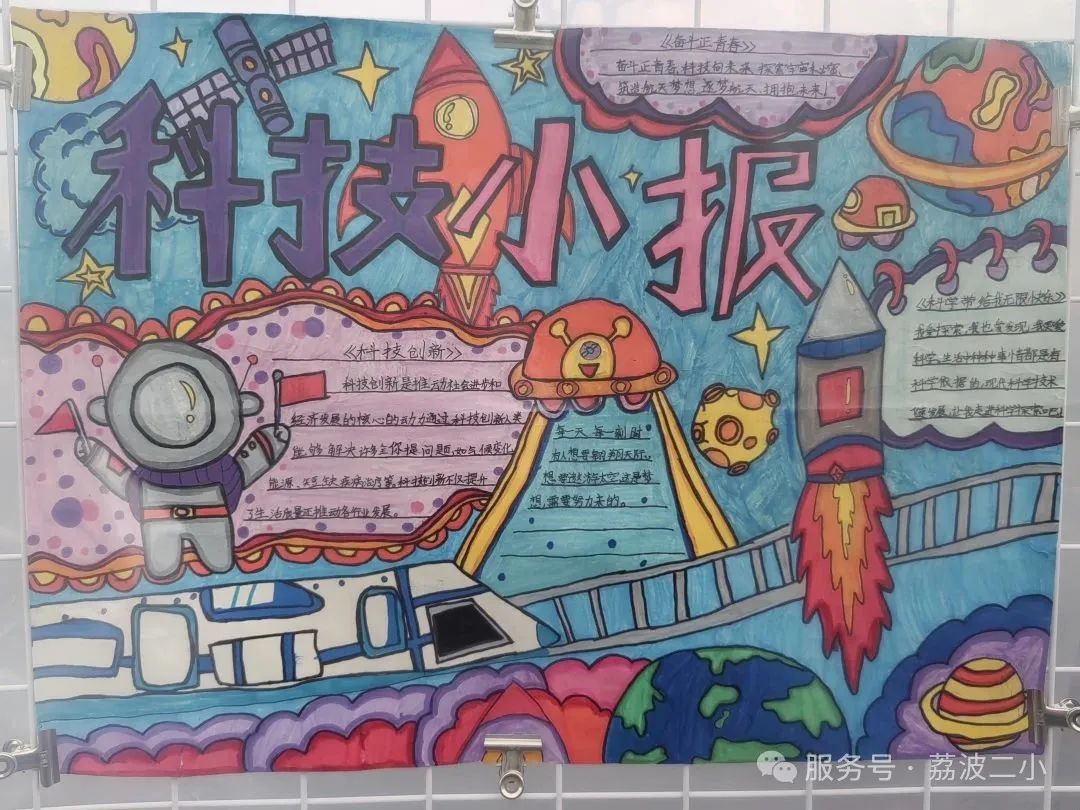 科技小报
《奋斗正青春》
奋斗正青春,科技向未来,探索宇宙
筑造航天梦想,逐梦航天,拥抱未来!
《科学带给我无限快乐》
我会探索,
科学,生活中种种事情都是有
科学依据的,现代科学技术
发展,让我走进科学探索吧!
《科技创新》
科技创新是推动社会进步和
经济发展的核心的动力通过科技创新人类
能够解决许多 问题,如气候变化
能源、 疾病治疗等,科技创新不仅提升
了生活质量还推动各行业发展。
每一天,每一刻,时
为人想要翱翔天际,
想要遨游太空,这是梦
想,需要努力来的。
服务号·荔波二小